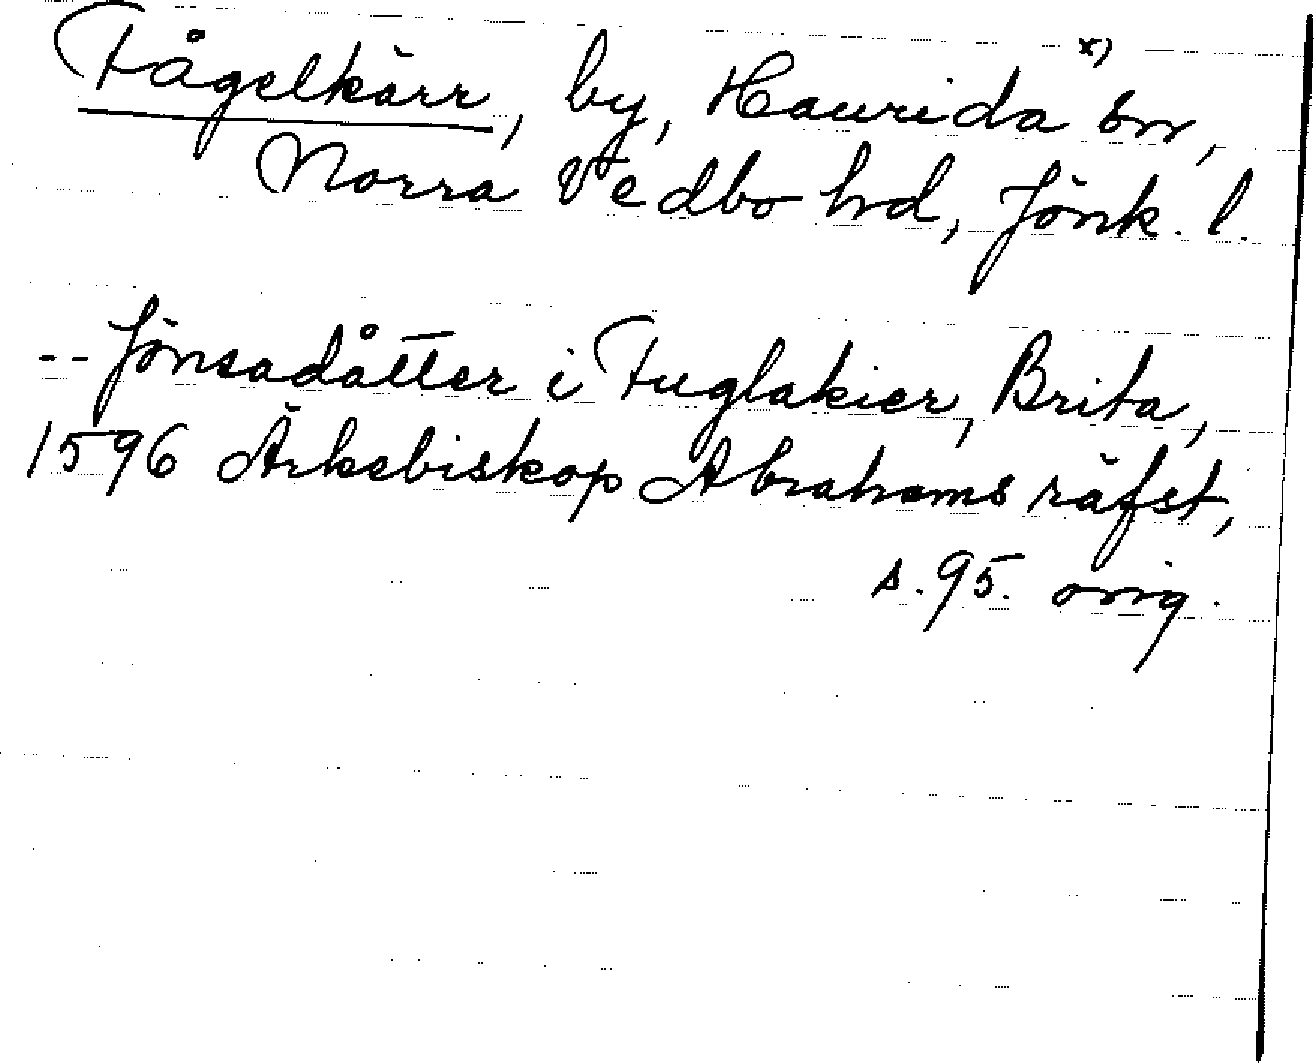 Fågelkärr, by, Haurida x) sn,
Norra Vedbo hrd, Jönk. l.
-- Jönsadåtter i Fuglakier, Brita,
1596 Ärkebiskop Abrahams räfst,
s. 95. orig.